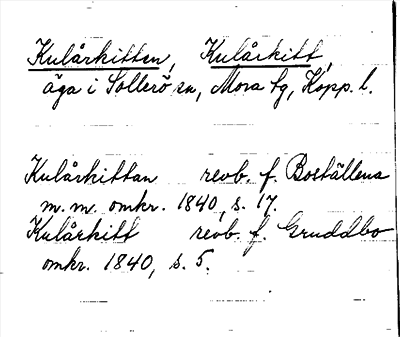 Kulårkitten, Kulårkitt,
äga i Sollerö sn, Mora tg, Kopp. l.
Kulårkittan revb. f. Boställena
m.m. omkr. 1840, s. 17.
Kulårkitt revb. f. Gruddbo
omkr. 1840, s. 5.